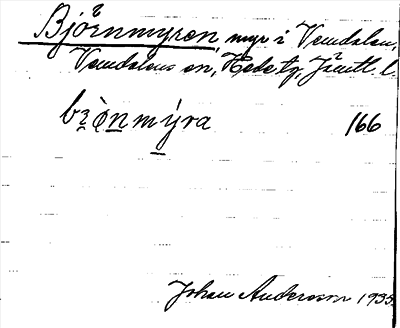 Björnmyren, myr i Vemdalen,
Vemdalens sn, Hede tg, Jämtl. l.
bzònmýra 166
Johan Anderson 1935